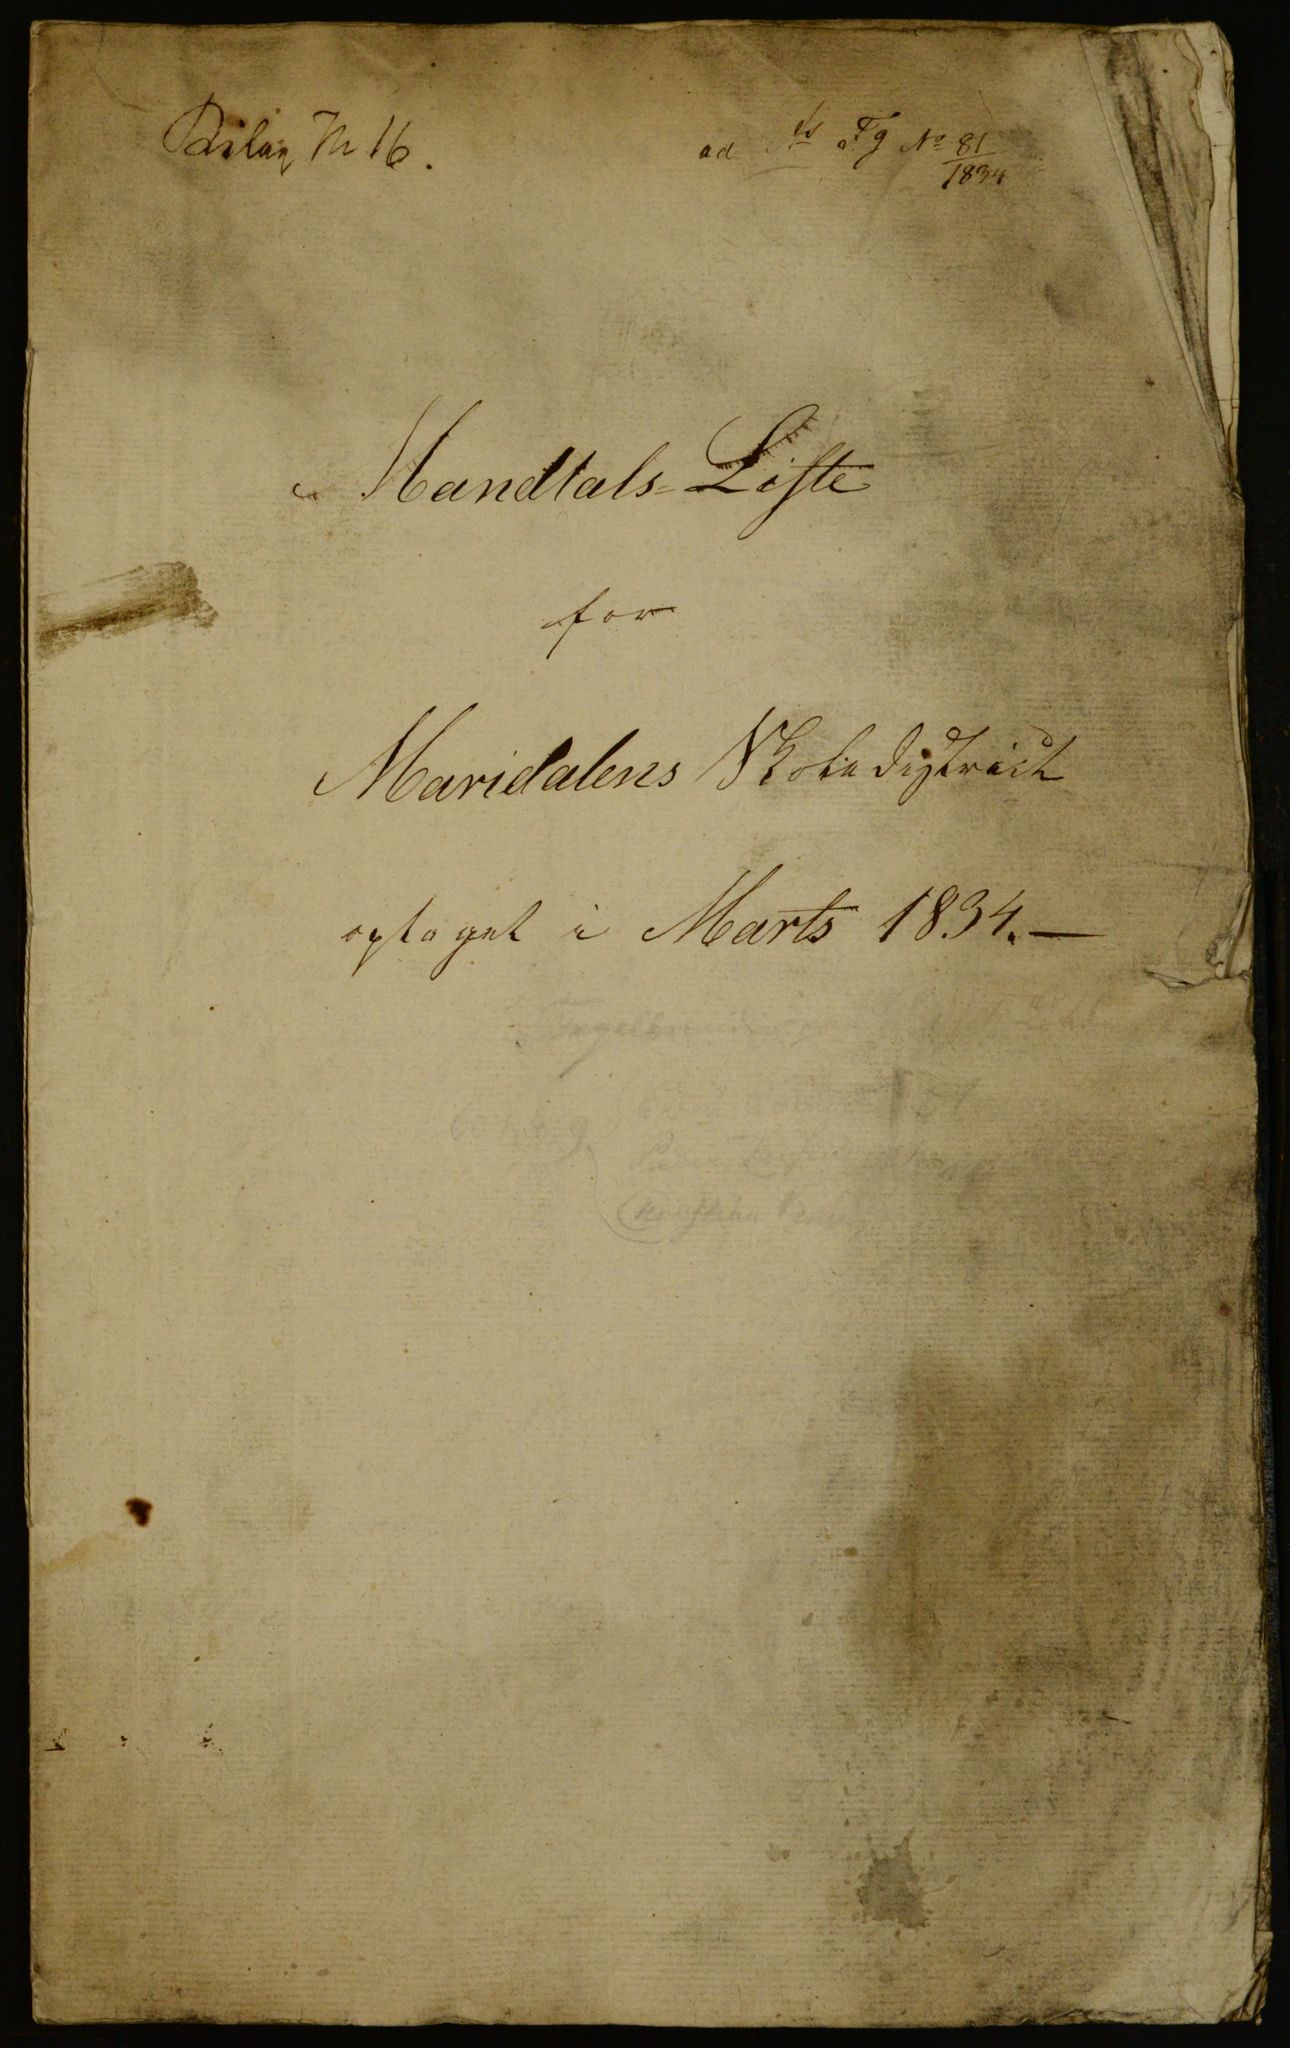 Bilag Nr 16.
ad Fg No 81/1834
Mandtals-Liste
for
Maridalens Skoledistrict
optaget i Marts 1834.—